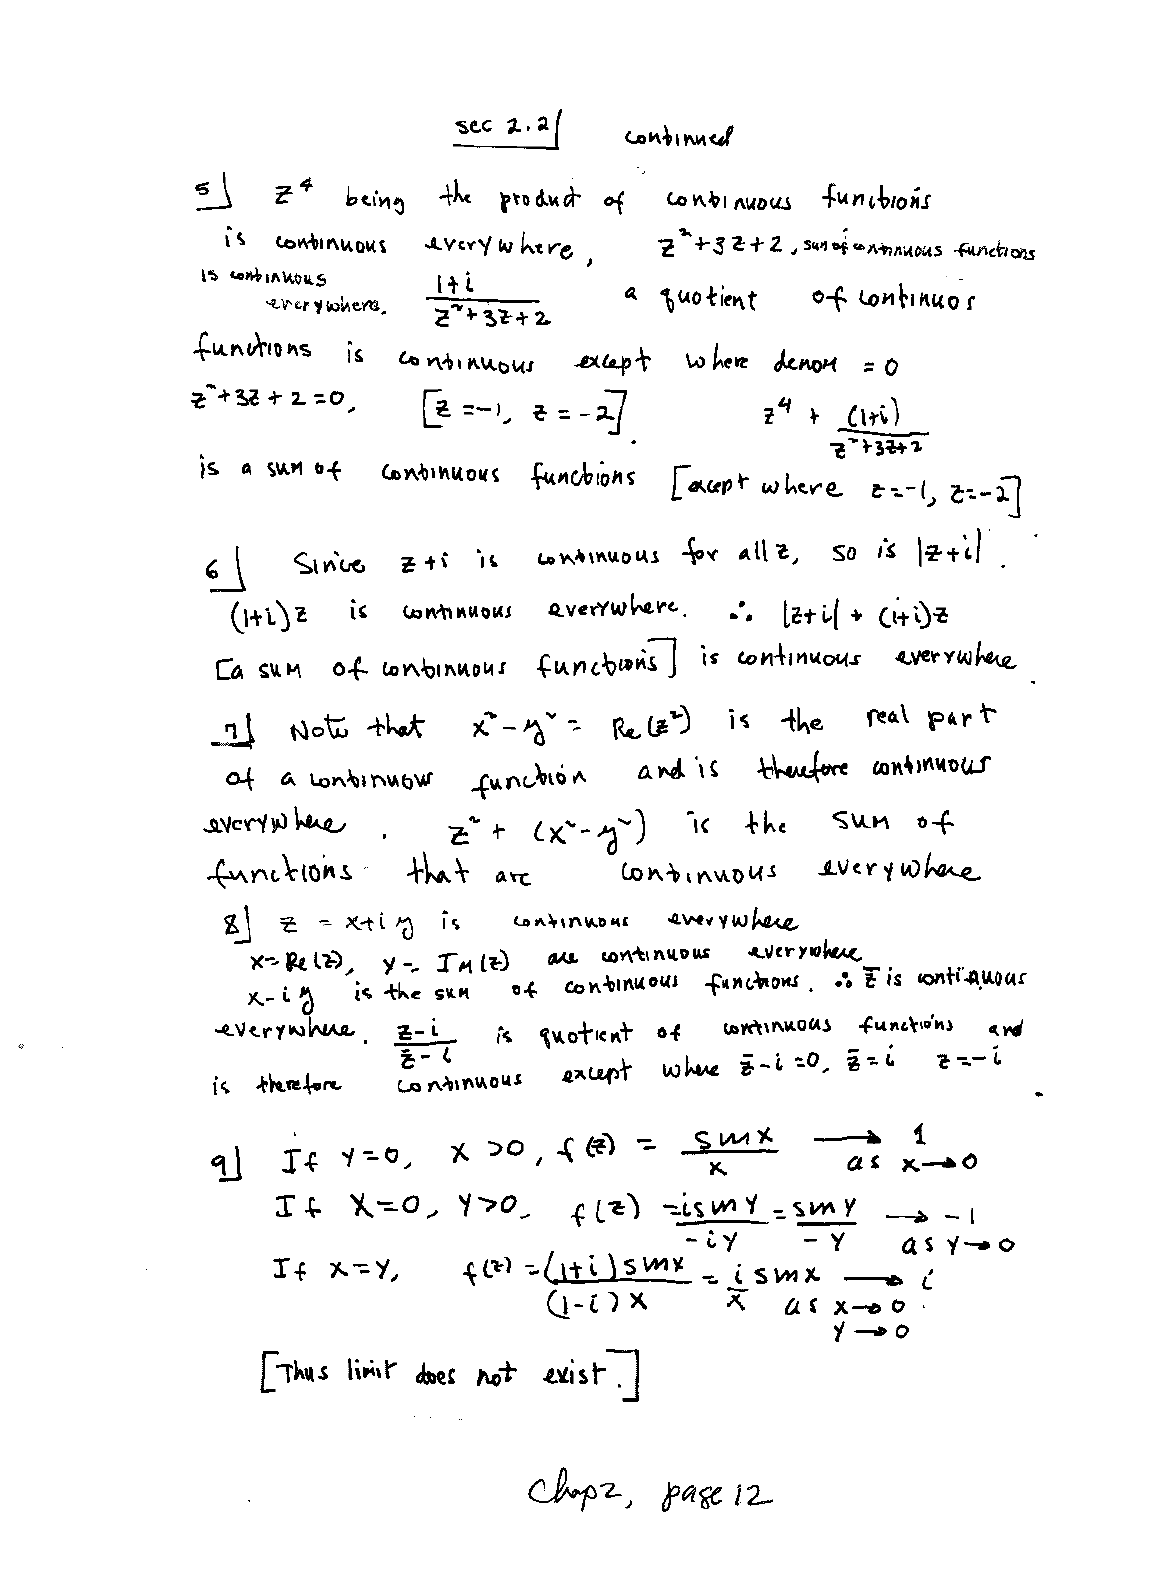 sec 2.2 continued
5] z² being the product of continuous functions
is continuous everywhere, z²+3z+2, sum of continuous functions
is continuous everywhere. (1+i)/(z²+3z+2) a quotient of continuos
functions is continuous except where denom = 0
z²+3z+2=0, [z=-1, z=-2]. z⁴ + (1+i)/(z²+3z+2)
is a sum of continuous functions [except where z=-1, z=-2]
6] Since z+i is continuous for all z, so is |z+i|.
(1+i)z is continuous everywhere. ∴ |z+i| + (1+i)z
[a sum of continuous functions] is continuous everywhere.
7] Note that x²-y² = Re(z²) is the real part
of a continuous function and is therefore continuous
everywhere. z² + (x²-y²) is the sum of
functions that are continuous everywhere
8] z = x+iy is continuous everywhere
x=Re(z), y= Im(z) are continuous everywhere
x-iy is the sum of continuous functions. ∴ z̄ is continuous
everywhere. (z-i)/(z̄-i) is quotient of continuous functions and
is therefore continuous except where z̄-i=0, z̄=i z=-i
9] If y=0, x>0, f(z) = sin x/x → 1 as x→0
If x=0, y>0, f(z) = i sin y/-iy = sin y/-y → -1 as y→0
If x=y, f(z) = (1+i) sin x/(1-i)x = i sin x/x → i as x→0 y→0
[Thus limit does not exist.]
Chap 2, page 12